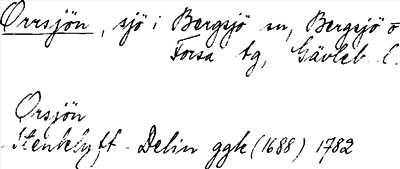 Orrsjön, sjö i Bergsjö sn, Bergsjö o
Forsa tg, Gävleb. l.
Orsjön
Stenklyft - Delin ggk (1688) 1782